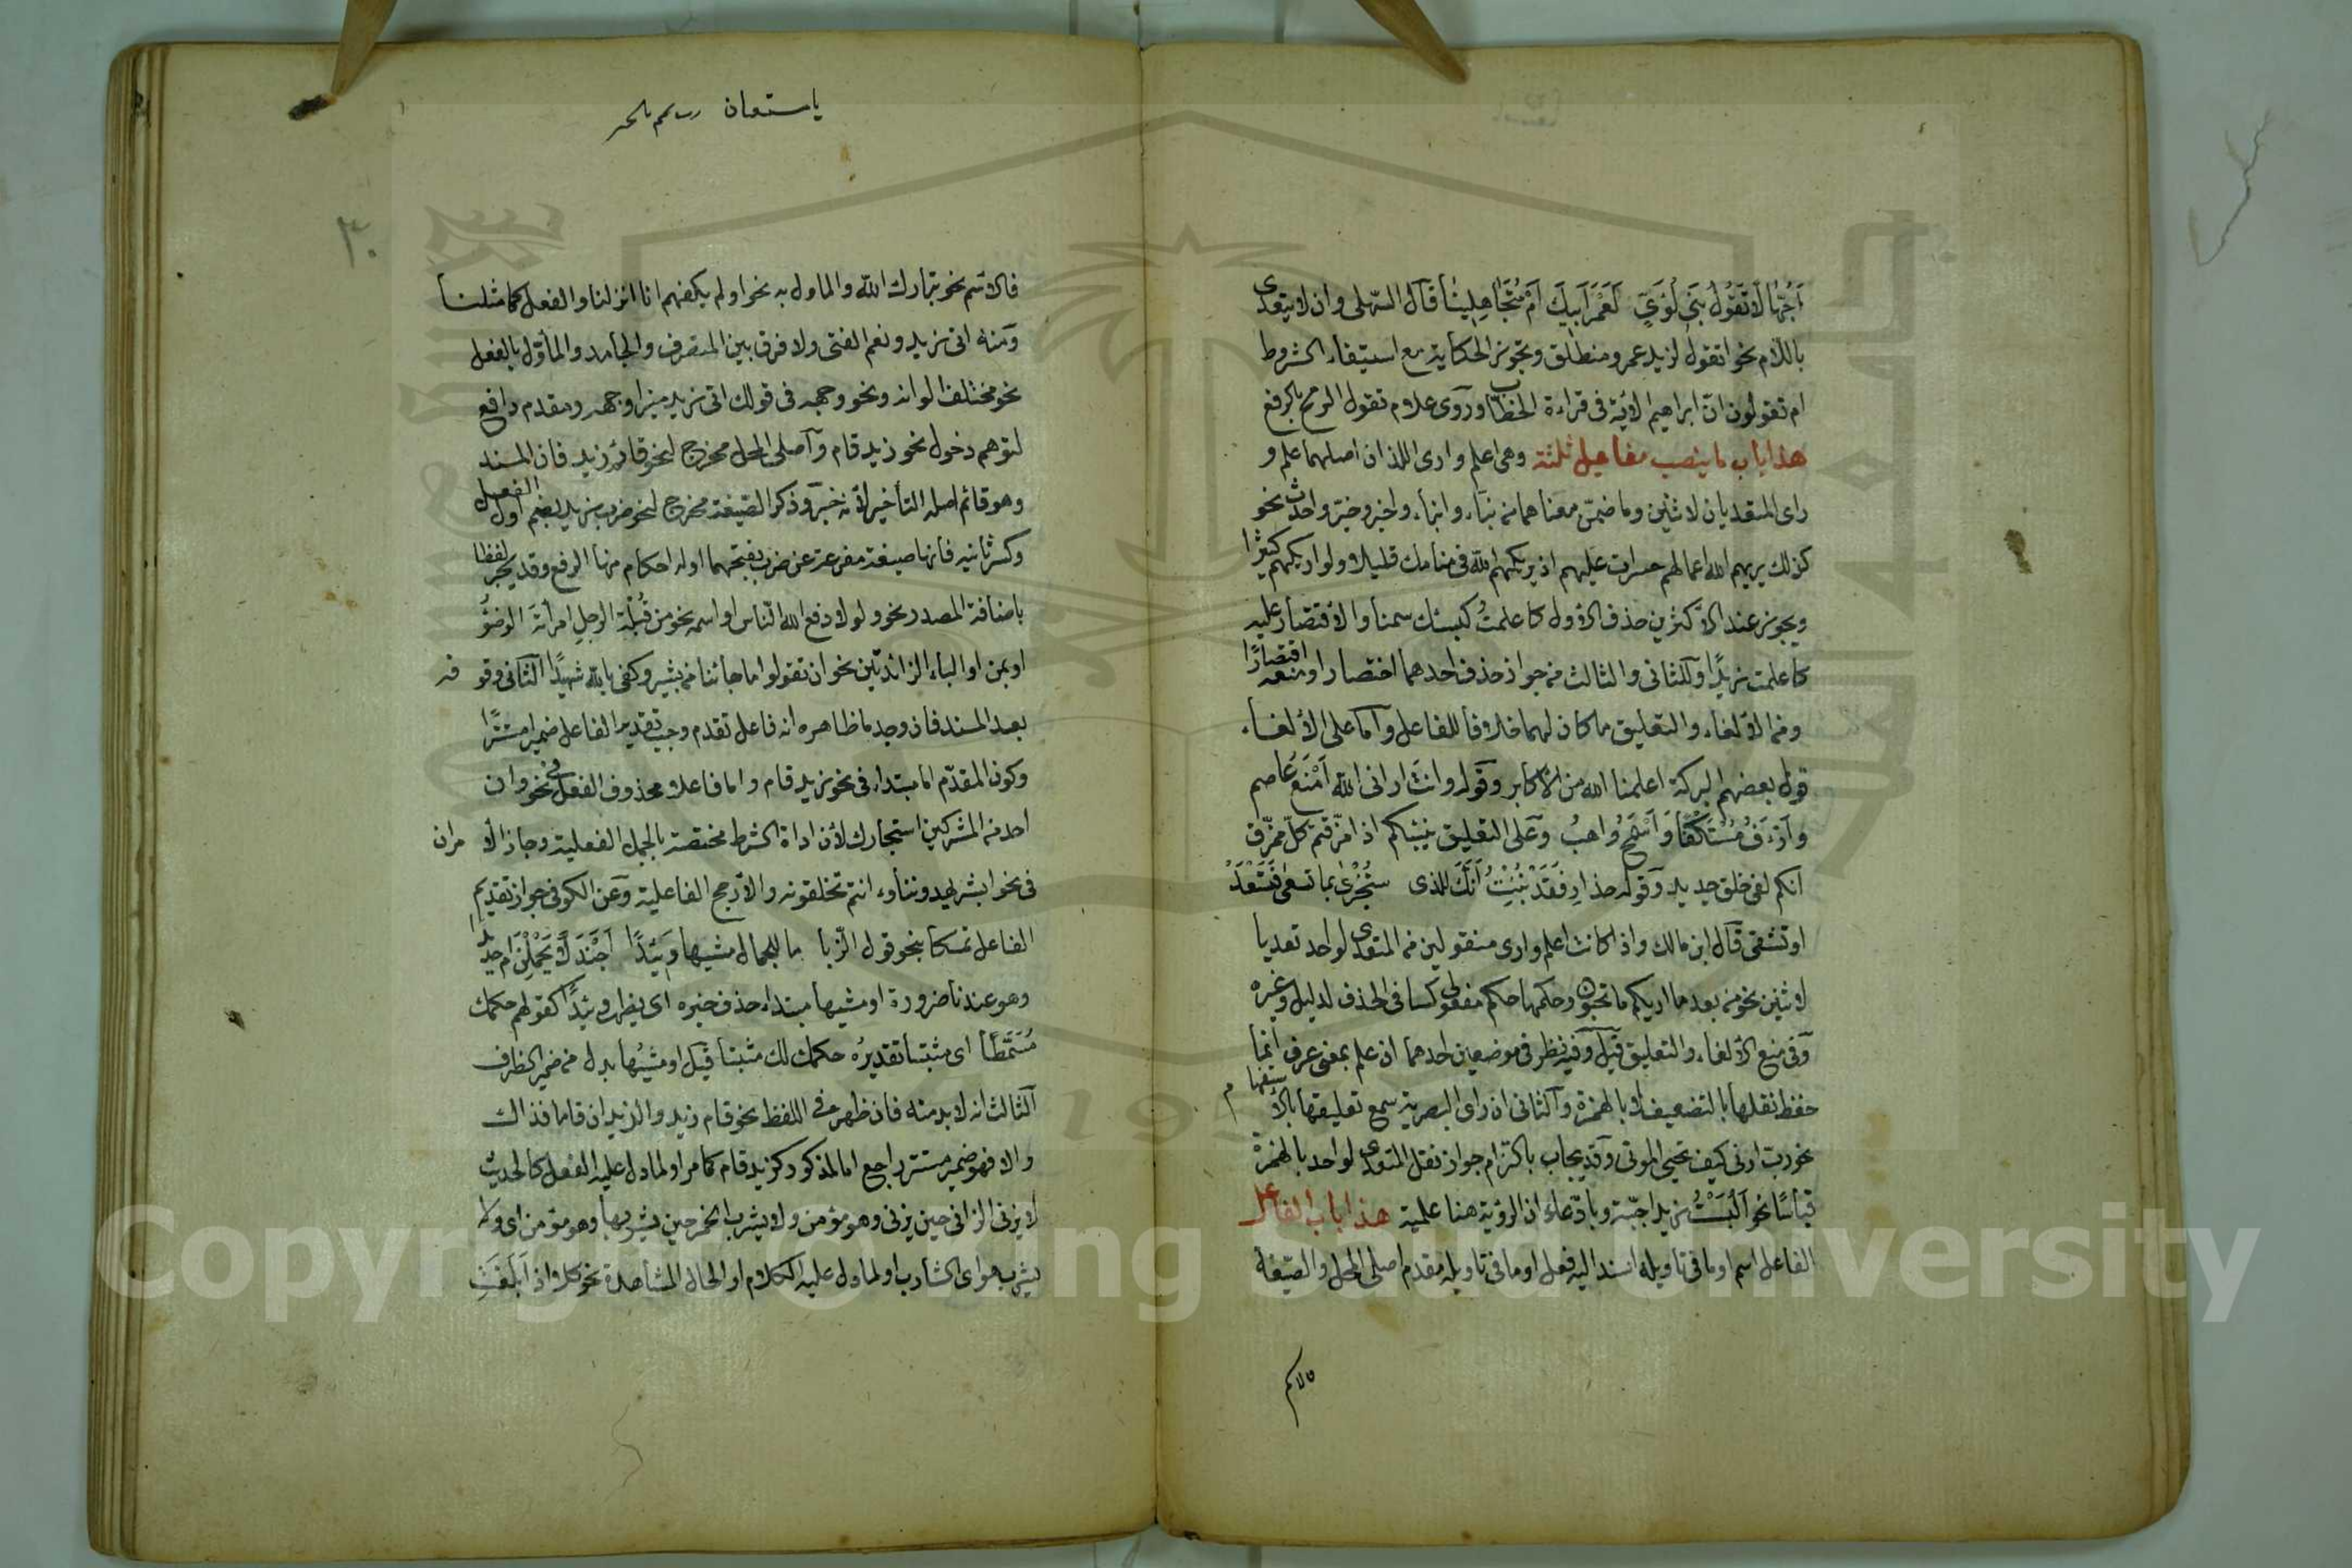 أَجُهّالا تَقُولُ بَنِي لُؤَيٍّ لَعَمْرُ أَبِيكَ أَمْ مُتَجَاهِلِينَا قال السهيلى وان لا يتعدى
باللام نحو اتقول لزيد عمرو منطلق وتجوز الحكاية مع استيفاء الشروط
ام تقولون ان ابراهيم الاية فى قراءة الخطاب وروى علام تقول الرمح بالرفع
هذا باب ما ينصب مفاعيل ثلثة وهى اعلم وارى اللذان اصلهما علم و
راى المتعديان لاثنين وما ضمن معناهما من نبّأ وانبأ واخبر وخبّر وحدّث نحو
كذلك يريهم الله اعمالهم حسرات عليهم اذ يريكهم الله فى منامك قليلا ولو اريكهم كثيرا
ويجوز عند الاكثرين حذف الاول كاعلمتُ كبشك سمينا والاقتصار عليه
كاعلمت زيدًا وللثانى والثالث من جواز حذف احدهما اختصارا ومنعه اقتصارًا
ومن الالغاء والتعليق ما كان لهما خلافا للفاعل واما على الالغاء
قول بعضهم البركة اعلمنا الله من الاكابر وقوله وانتَ ارانى الله اَمْنَعُ عاصم
وارْءَفُ مُسْتَكْفًى وَأسْمَحُ واهبُ وعلى التعليق ينبئكم اذا مزقتم كل ممزق
انكم لفى خلق جديد وقوله حذارِ فَقَدْ نُبِّئْتُ اَنَّكَ للذى ستُجْزَى بما تسعى فَتَسْعَدُ
او تشقى قال ابن مالك واذا كانت اعلم وارى منقولين من المتعدى لواحد تعديا
لاثنين نحو من بعد ما اريكم ما تحبون وحكمهما حكم مفعولى كسا فى الحذف لدليل وغيره
وفى منع الالغاء والتعليق قيل وفيه نظر فى موضعين احدهما ان علم بمعنى عرف انما
حفظ نقلها بالتضعيف لا بالهمزة والثانى ان راى البصرية سمع تعليقها بالاستفهام
نحو رب ارنى كيف تحيى الموتى وقد يجاب بالتزام جواز نقل المتعدى لواحد بالهمزة
قياسًا نحو اَلْبَسْتُ زيدا جبّة وبادّعاء ان الرؤية هنا علمية هذا باب الفاعل
الفاعل اسم او ما فى تاويله اسند اليه فعل او ما فى تاويله مقدم اصلى المحل والصيغة
فالاسم
يا مستعان رب تمم بالخير
٣٠
فالاسم نحو تبارك الله والماول به نحو اولم يكفهم انا انزلنا والفعل كما مثلنا
ومنه اتى زيد ونعم الفتى ولا فرق بين المتصرف والجامد والمأوّل بالفعل
نحو مختلف الوانه ونحو وجهه فى قولك اتى زيد منيرا وجهه ومقدم دافع
لتوهم دخول نحو زيد قام واصلى المحل مخرج لنحو قائم زيد فان المسند
وهو قائم اصله التأخير لانه خبر وذكر الصيغة مخرج لنحو ضرب زيد بضم اول الفعل
وكسر ثانيه فانها صيغة مفرعة عن ضرب بفتحهما وله احكام منها الرفع وقد يجر لفظا
باضافة المصدر نحو ولولا دفع الله الناس او اسمه نحو من قُبْلَة الرجلِ امرأتَه الوضوُ
او بمن او الباء الزائدتين نحو ان تقولوا ما جائنا من بشير وكفى بالله شهيدًا الثانى وقوعه
بعد المسند فان وجد ما ظاهره انه فاعل تقدم وجب تقدير الفاعل ضميرا مستترًا
وكون المقدّم اما مبتداء فى نحو زيد قام واما فاعلا محذوف الفعل فى نحو وان
احد من المشركين استجارك لان اداة الشرط مختصة بالجمل الفعلية وجاز الامران
فى نحو ابشر يهدوننا وء انتم تخلقونه والارجح الفاعلية وعن الكوفى جواز تقديم
الفاعل تمسكا بنحو قول الزّبا ما للجمال مشيها وَئيدًا اَجَنْدَلًا يَحْمِلْنَ ام حديدا
وهو عندنا ضرورة او مشيها مبتداء حذف خبره اى يظهر وئيدًا كقولهم حكمك
مُسَمَّطًا اى مثبتا تقديرُه حكمك لك مثبتا قيل او مشيُها بدل من ضمير الظرف
الثالث انه لا بد منه فان ظهر فى اللفظ نحو قام زيد والزيدان قاما فذاك
والا فهو ضمير مستتر راجع اما لمذكور كزيد قام كما مر او لما دل عليه الفعل كالحديث
لا يزنى الزانى حين يزنى وهو مؤمن ولا يشرب الخمر حين يشربها وهو مؤمن اى ولا
يشرب هو اى الشارب او لما دل عليه الكلام او الحال المشاهدة نحو كلا اذا بَلَغَتِ
Copyright © King Saud University